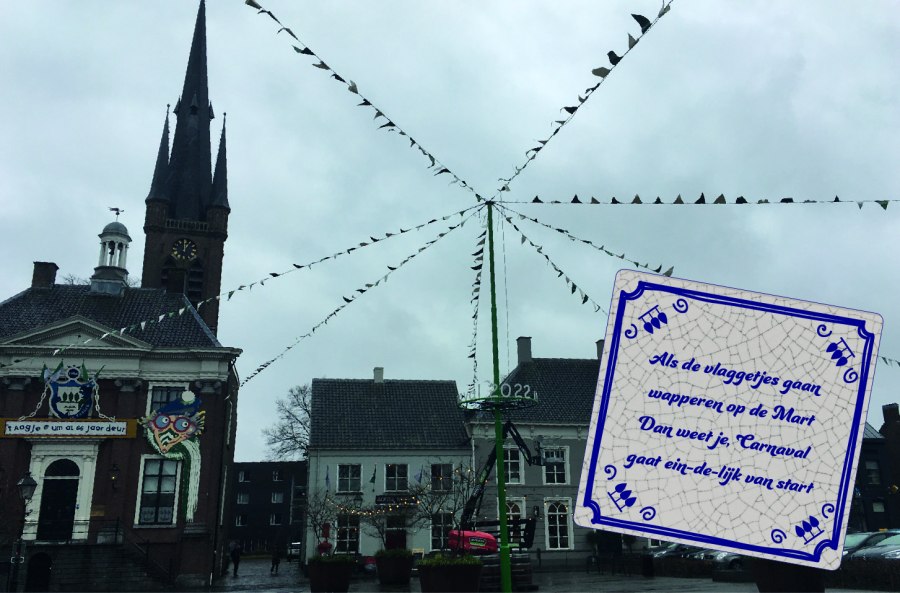 't Aogje is um al 66 jaor deur
2022
Als de vlaggetjes gaan
wapperen op de Mart
Dan weet je, Carnaval
gaat ein-de-lijk van start